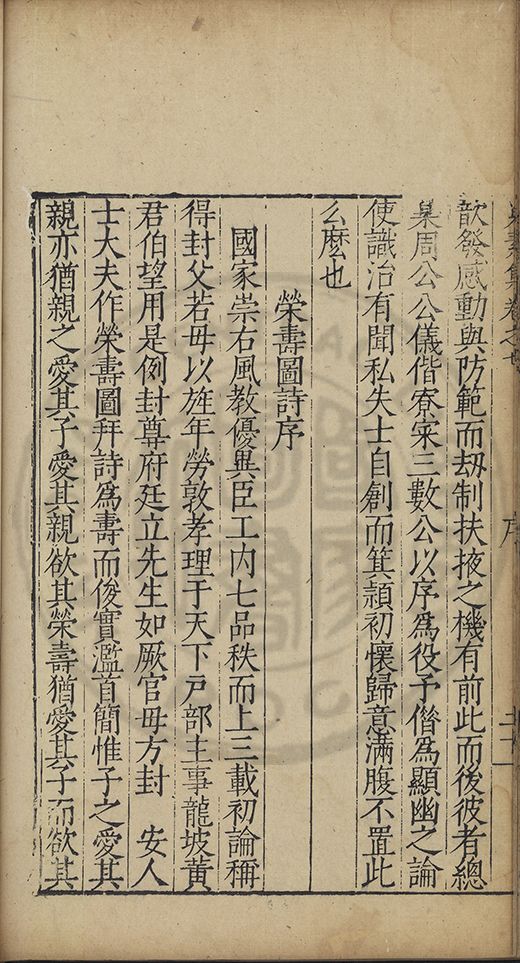 集卷之七 序 十一
歆發感動與防範而刼制扶掖之機有前此而後彼者總
臬周公公儀偕寮寀三數公以序爲役予僭爲顯幽之論
使識治有聞私失士自創而箕頴初懷歸意滿腹不置此
么麼也
榮壽圖詩序
國家崇右風教優異臣工内七品秩而上三載初論稱
得封父若母以旌年勞敦孝理于天下戸部主事龍坡黃
君伯望用是例封尊府廷立先生如厥官母方封 安人
士大夫作榮壽圖拜詩爲壽而俊實濫首簡惟子之愛其
親亦猶親之愛其子愛其親欲其榮壽猶愛其子而欲其